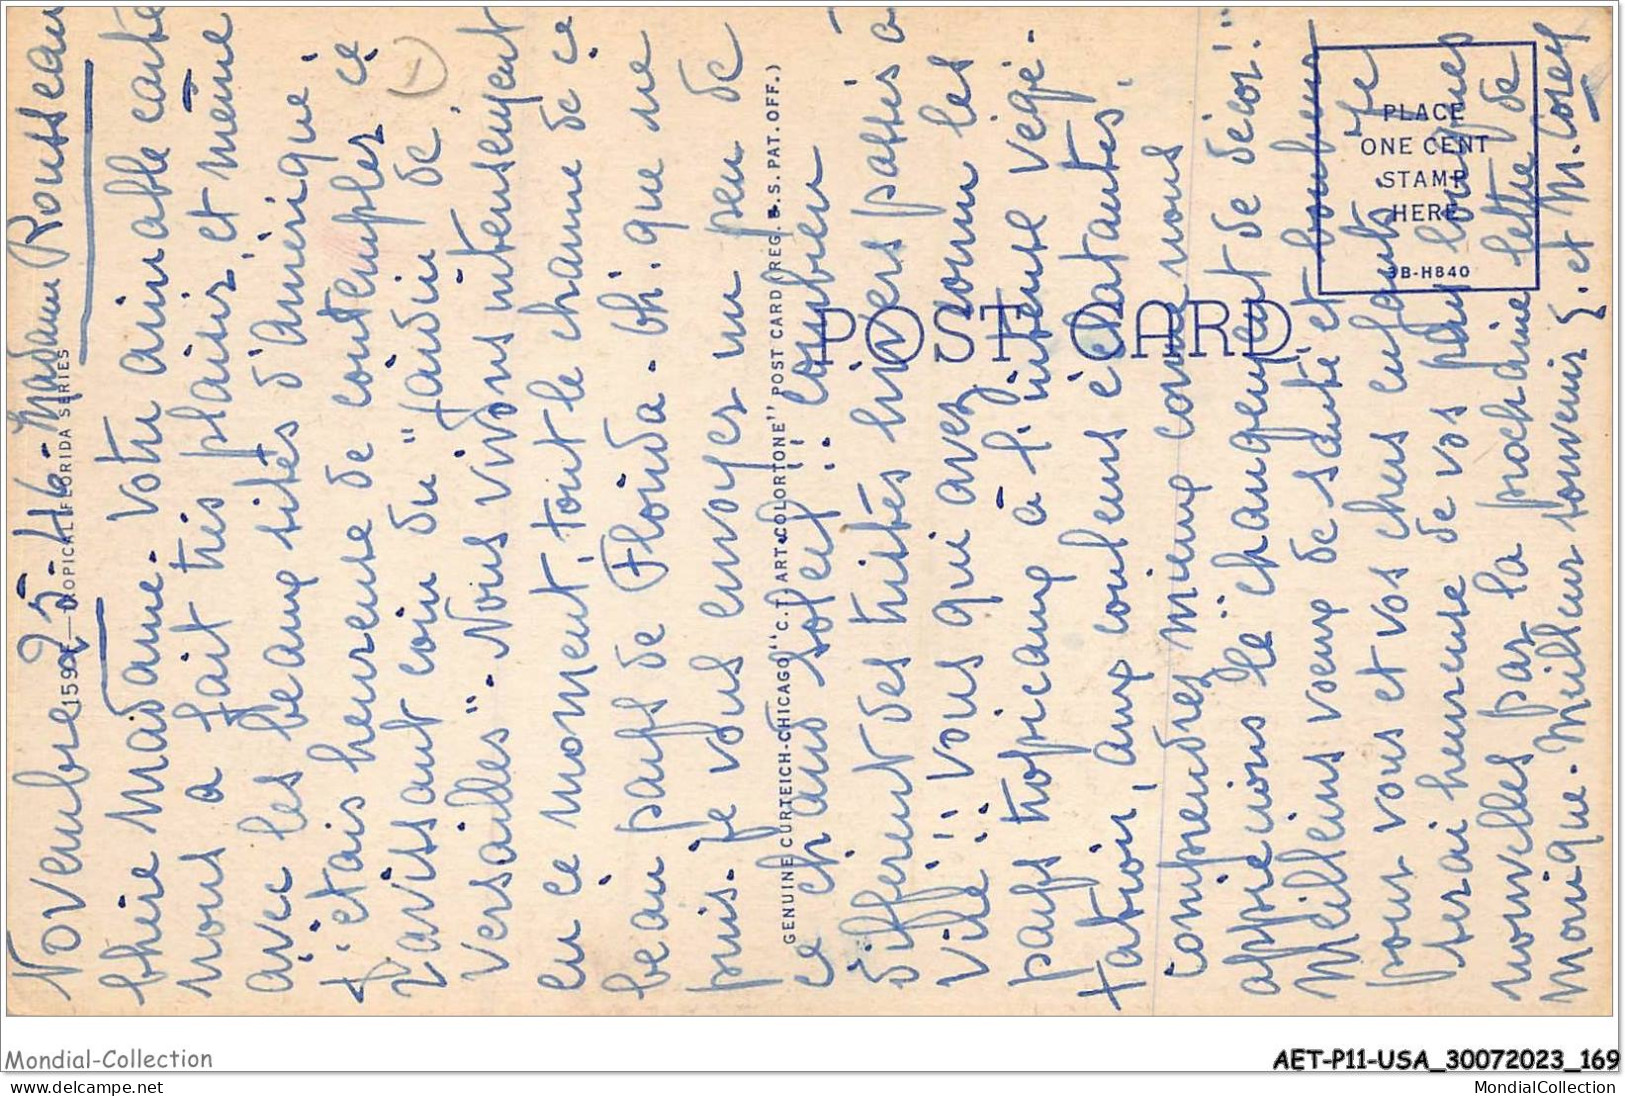 Novembre 25-46- Madame Rousseau
Chère Madame - Votre aimable carte
nous a fait très plaisir, et même
avec les beaux sites d'Amérique,
j'étais heureuse de contempler ce
ravissant coin du "Jardin de
Versailles". Nous vivons intensément
en ce moment, tout le charme de ce
beau pays de Floride - Oh! que ne
puis-je vous envoyer un peu de
ce chaud soleil!! combien
différent des tristes hivers passés à
Ville!! vous qui avez connu les
pays tropicaux à l'intense végé-
tation, aux couleurs éclatantes,
comprendrez mieux comme nous
apprécions le "changement de décor!"
Meilleurs voeux de santé et bonheur
pour vous et vos chers enfants. Je
serai heureuse de vos plus longues
nouvelles par la prochaine lettre de
Monique. Meilleur souvenir S. et M. Corey
159 E—TROPICAL FLORIDA SERIES
GENUINE CURTEICH-CHICAGO "C.T. ART-COLORTONE" POST CARD (REG. U.S. PAT. OFF.)
POST CARD
PLACE
ONE CENT
STAMP
HERE
3B-H840
Mondial-Collection
AET-P11-USA_30072023_169
www.delcampe.net
MondialCollection